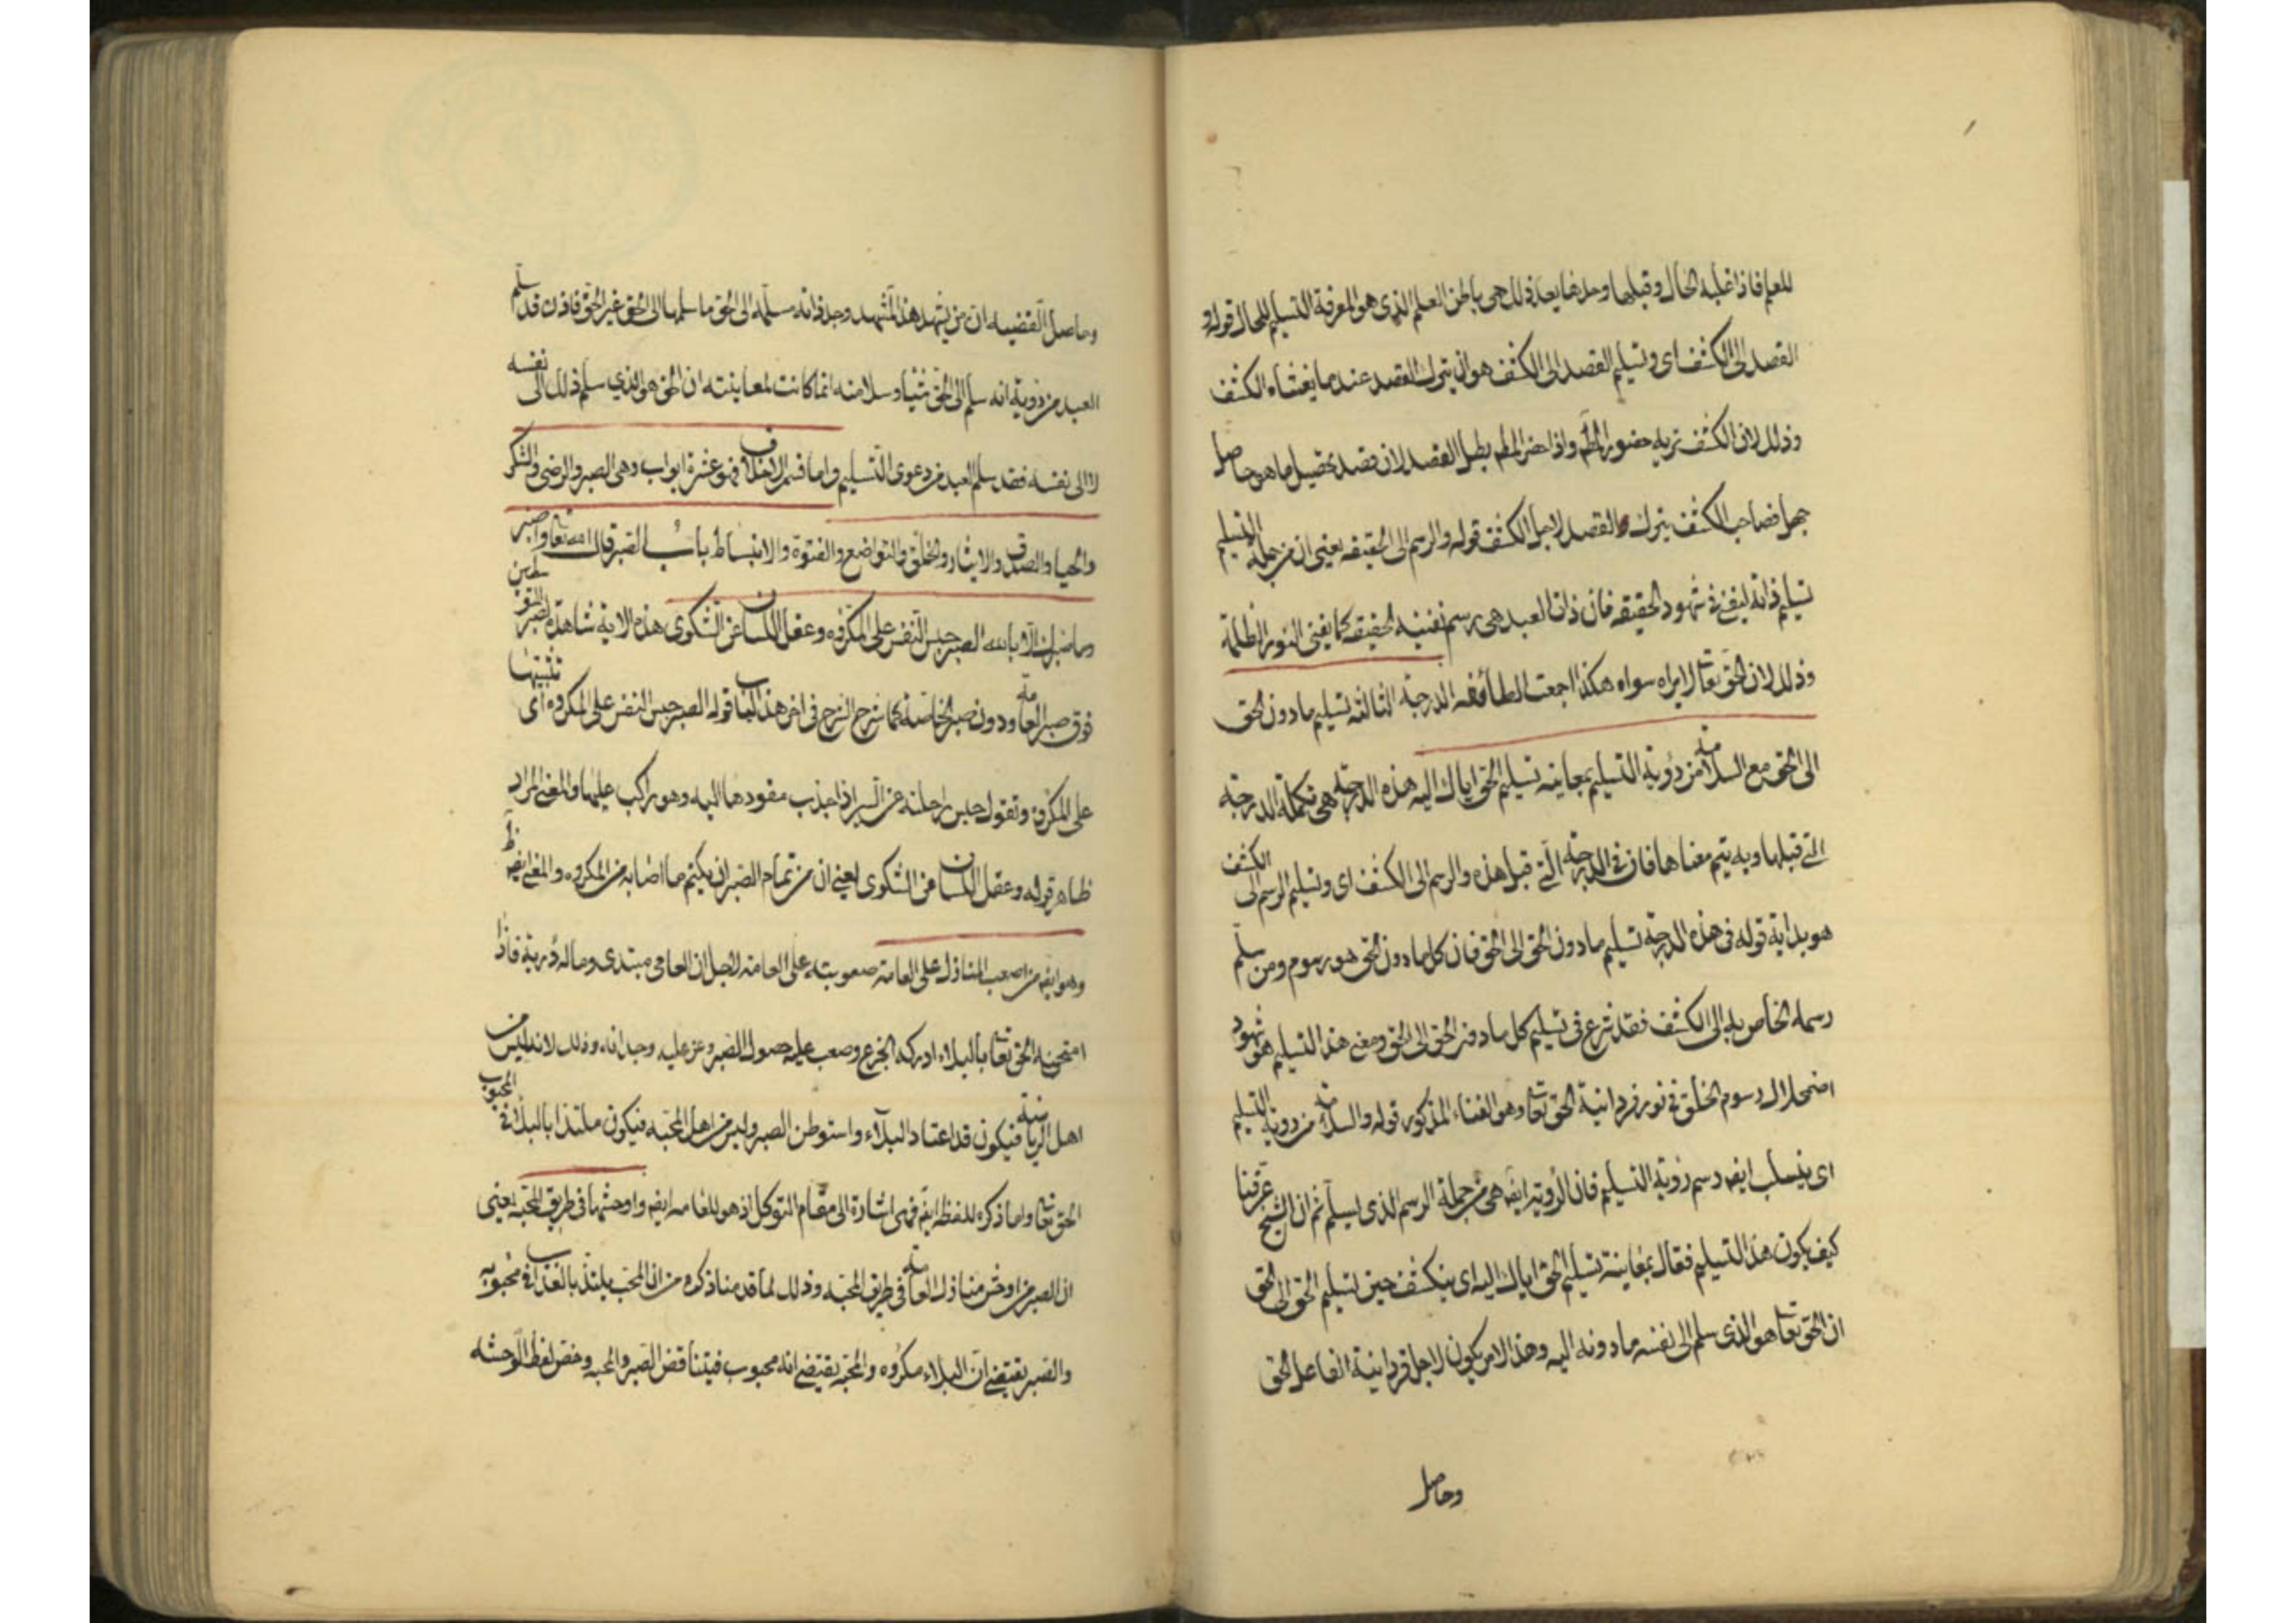 للعلم فاذا غلبه الحال وقبلها وحدها بعد ذلك هي باطن العلم الذي هو المعرفة التسليم للحال قوله و
القصد الى الكشف اى وتسليم القصد الى الكشف هو ان يترك القصد عندما يغشاه الكشف
وذلك لان الكشف يريه حضور المطلم واذا حضر المطلم بطل القصد لان قصد تحصيل ما هو حاصل
جهل فصاحب الكشف يترك القصد لاجل الكشف قوله والرسم الى الحقيقه يعنى ان من جملة التسليم
تسليم ذاته ليفنى فى شهود الحقيقه فان ذات العبد هى رسم تفنيه الحقيقه كما يفنى النور الظلمة
وذلك لان الحق تعا لا يراه سواه هكذا اجمعت الطائفه الدرجة الثالثه تسليم مادون الحق
الى الحق مع السلامة من رؤية التسليم بمعاينه تسليم الحق اياك اليه هذه الدرجة هى تكملة الدرجة
التى قبلها وبه يتم معناها فان فى الدرجة التى قبل هذه والرسم الى الكشف اى وتسليم الرسم الى الكشف
هو بداية قوله فى هذه الدرجة تسليم مادون الحق الى الحق فان كل مادون الحق هو رسوم ومن سلم
رسمه الخاص به الى الكشف فقد شرع فى تسليم كل مادون الحق الى الحق ومعنى هذا التسليم هو شهود
اضمحلال رسوم الخلق فى نور فردانية الحق تعا وهو الفناء المذكور قوله والسلامة من رؤية التسليم
اى ينسلب ايض رسم رؤية التسليم فان الرؤية ايض هى من جملة الرسم الذى يسلم ثم ان الشيخ عرفنا
كيف يكون هذا التسليم فقال بمعاينة تسليم الحق اياك اليه اى ينكشف حين تسليم الحق الى الحق
ان الحق تعا هو الذى سلم الى نفسه مادونه اليه وهذا الامر يكون لاجل فردانية الفاعل الحق
وحاصل
وحاصل القضيه ان من يشهد هذا المشهد وجد ذاته مسلمه الى الحق ما سلمها الى الحق غير الحق فاذن قد سلم
العبد من رؤية انه سلم الى الحق شيئا وسلامته انما كانت لمعاينته ان الحق هو الذي سلم ذلك الى نفسه
لا الى نفسه فقد سلم العبد من دعوى التسليم واما قسم الاخلاق فهو عشرة ابواب وهى الصبر والرضى والشكر
والحيا والصدق والايثار والخلق والتواضع والفتوة والانبساط باب الصبر قال الله تعا واصبر
وما صبرك الا بالله الصبر حبس النفس على المكروه وعقل اللسان عن الشكوى هذه الاية شاهدة لصبر
فوق صبر العامة ودون صبر الخاصة كما شرح الشرح فى اخر هذا الباب قوله الصبر حبس النفس على المكروه اى تثبيتها
على المكروه وتقول حبس راحلته عن السير اذا جذب مقودها اليه وهو راكب عليها والمعنى المراد
ظاهر قوله وعقل اللسان عن الشكوى يعنى ان من تمام الصبر ان يكتم ما اصابه من المكروه والمعنى ايض
وهو ايض من اصعب المنازل على العامة صعوبته على العامة لاجل ان العامى مبتدى وماله دربة فاذا
امتحنه الحق تعا بالبلاء ادركه الجزع وصعب عليه حصول الصبر وعز عليه وجدانه وذلك لانه ليس من
اهل الرياضة فيكون قد اعتاد البلاء واستوطن الصبر وليس من اهل المحبه فيكون ملتذا بالبلاء فى المحبوب
الحق تعا واما ذكره للفظه ايض فهى اشارة الى مقام التوكل اذ هو للعامه ايض واوحشها فى طريق المحبه يعنى
ان الصبر من اوحش منازل العامة فى طريق المحبه وذلك لما قدمنا ذكره من ان المحب يلتذ بالعذاب فى محبوبه
والصبر يقتضى ان البلاء مكروه والمحبه يقتضى انه محبوب فيتناقض الصبر والمحبه وخص لفظ الوحشه